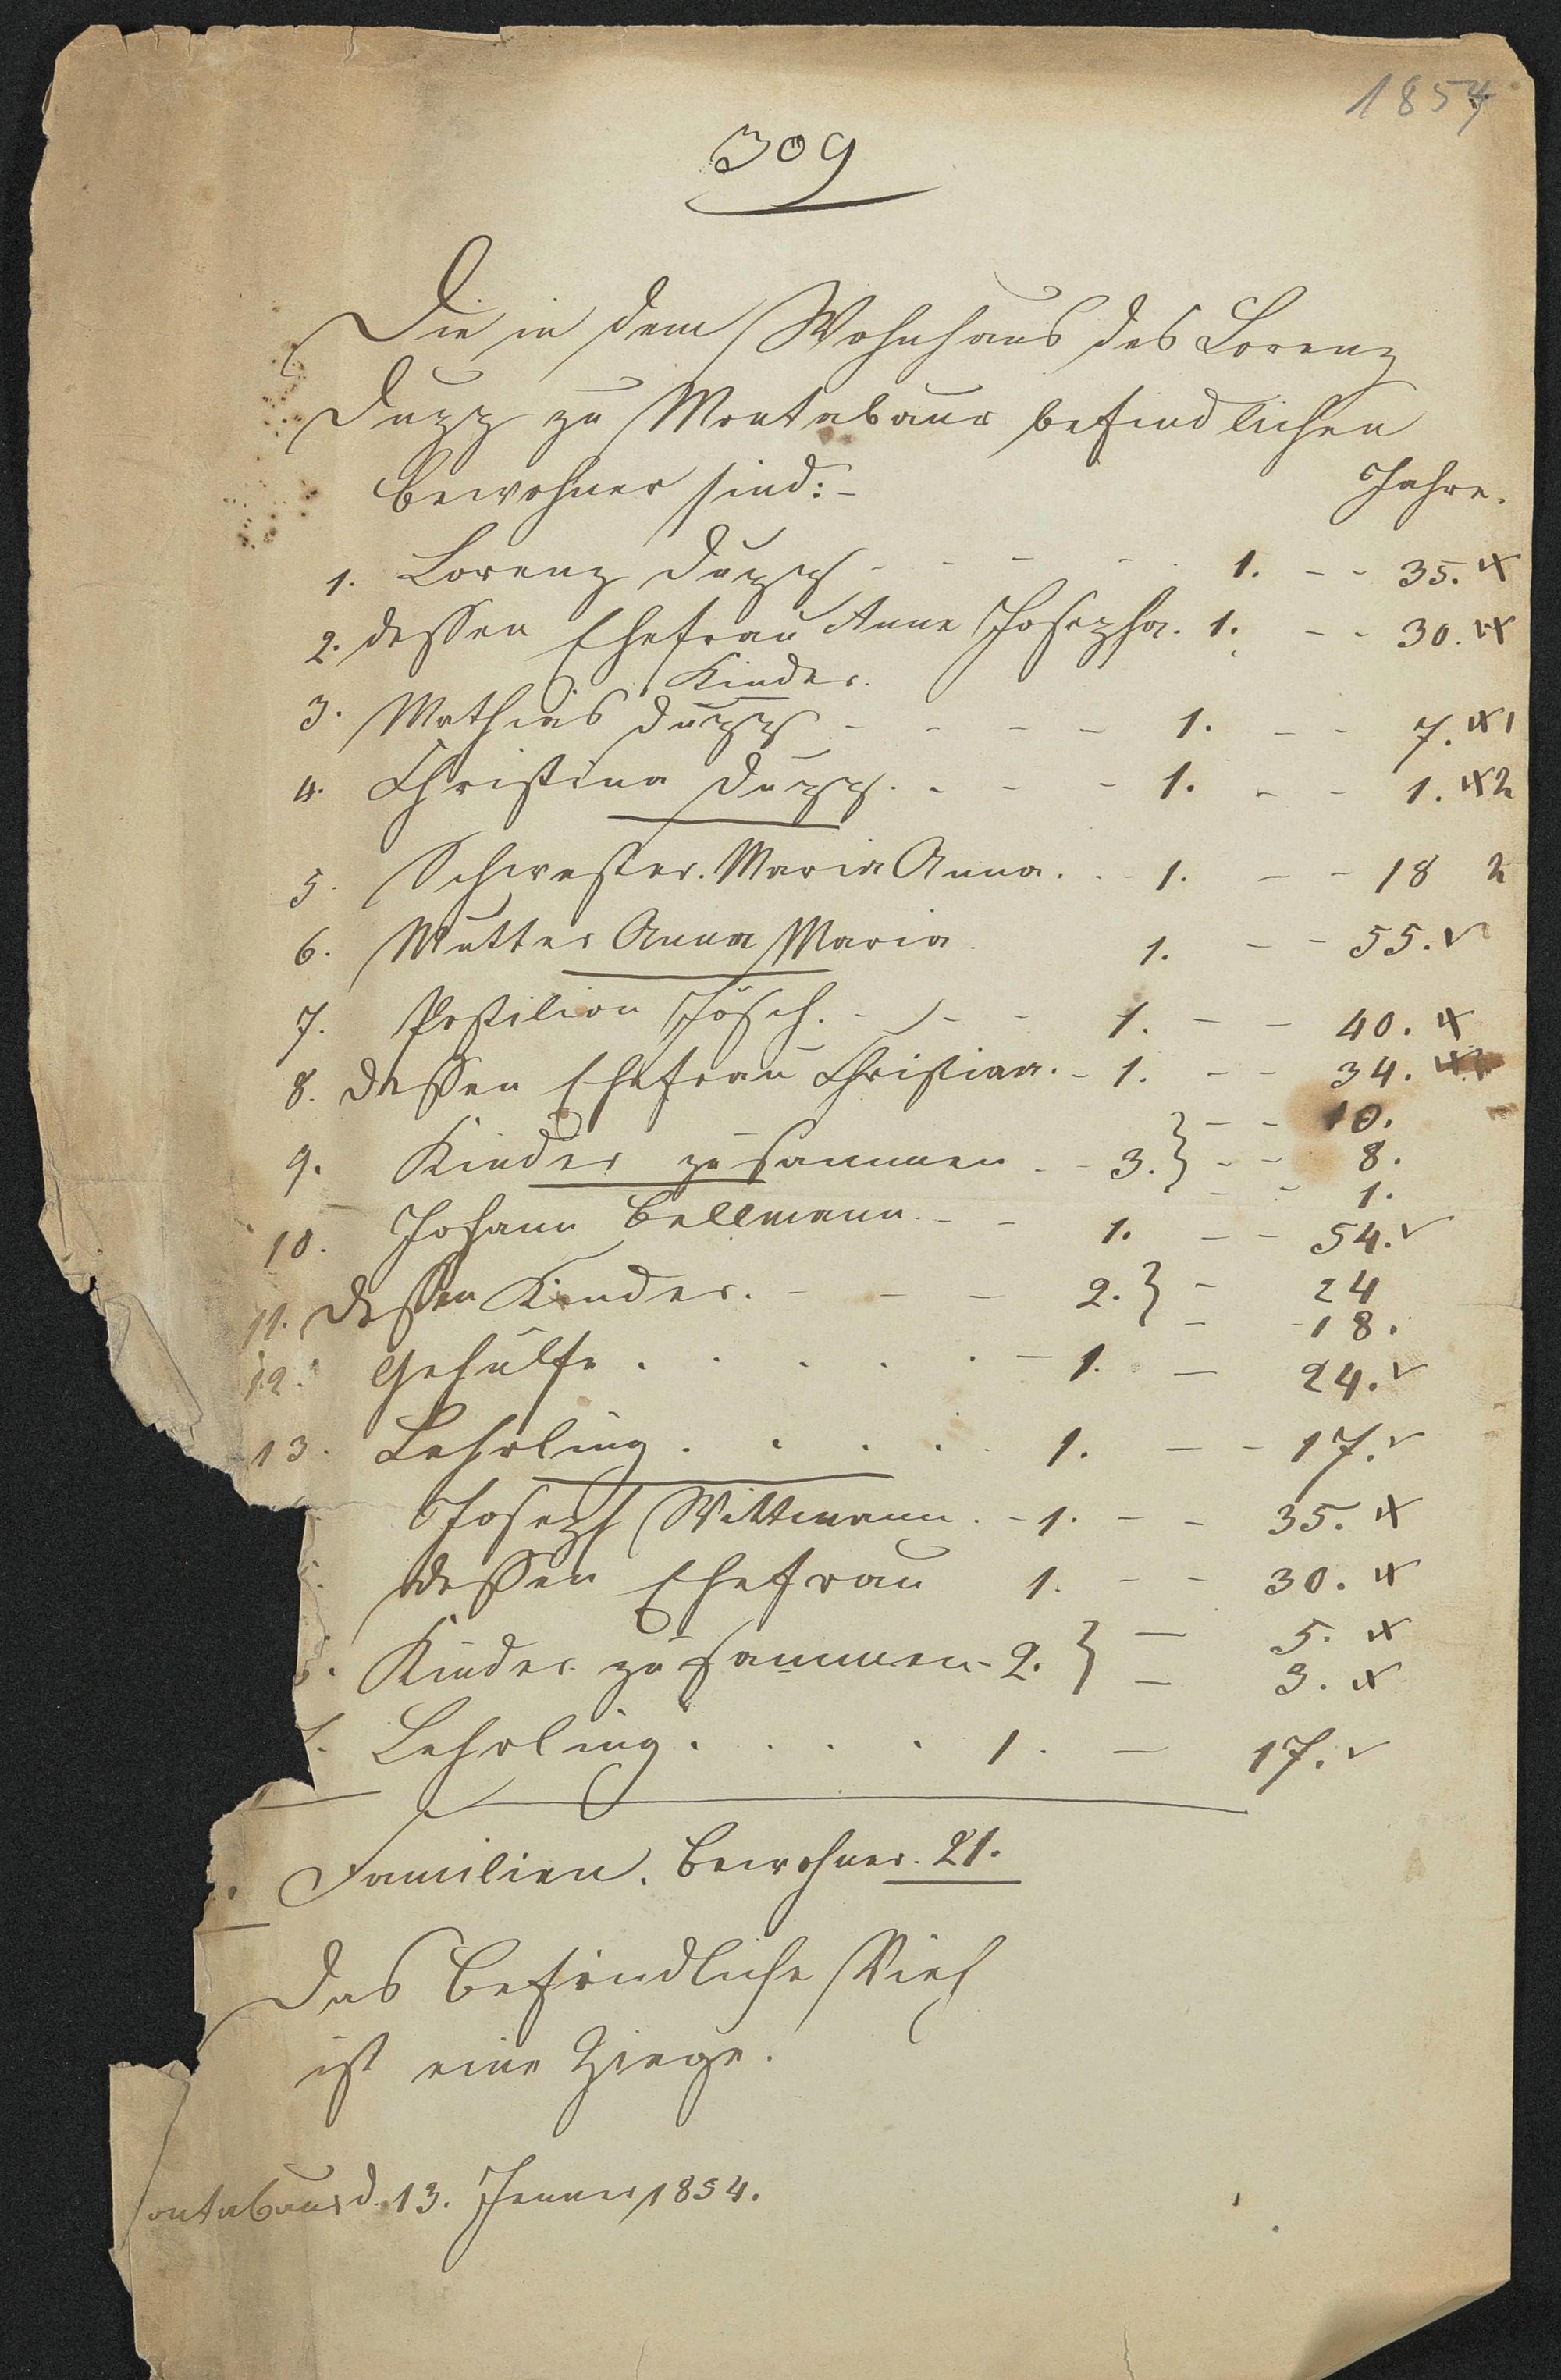 1854
309
Die in dem Wohnhaus des Lorenz
Dupp zu Montabaur befindlichen
Bewohner sind:- Jahre.
1. Lorenz Dupp - - - - 1. - - 35.
2. dessen Ehefrau Anne Josepha. 1. - - 30.
Kinder.
3. Mathias Dupp - - - - 1. - - 7. 1
4. Christina Dupp. - - - 1. - - 1. 2
5. Schwester. Maria Anna. - 1. - - 18 2
6. Mutter Anna Maria. 1. - - 55.
7. Postilion Jösch. - - - 1. - - 40.
8. Dessen Ehefrau Christian. - 1. - - 34.
9. Kinder zusammen - - 3. } - - 10.
- - 8.
- - 1.
10. Johann Bellmann. - - 1. - - 54.
11. Dessen Kinder. - - - 2. } - 24
- 18.
12. Gehülfe . . . . . - 1. - 24.
13. Lehrling . . . . . 1. - - 17.
Joseph Wittmann. - 1. - - 35.
dessen Ehefrau 1. - - 30.
Kinder zusammen - 2. } - 5.
- 3.
Lehrling . . . . 1. - 17.
Familien. Bewohner. 21.
Das Befindliche Vieh
ist eine Ziege.
ontabaur d. 13. Jenner 1854.